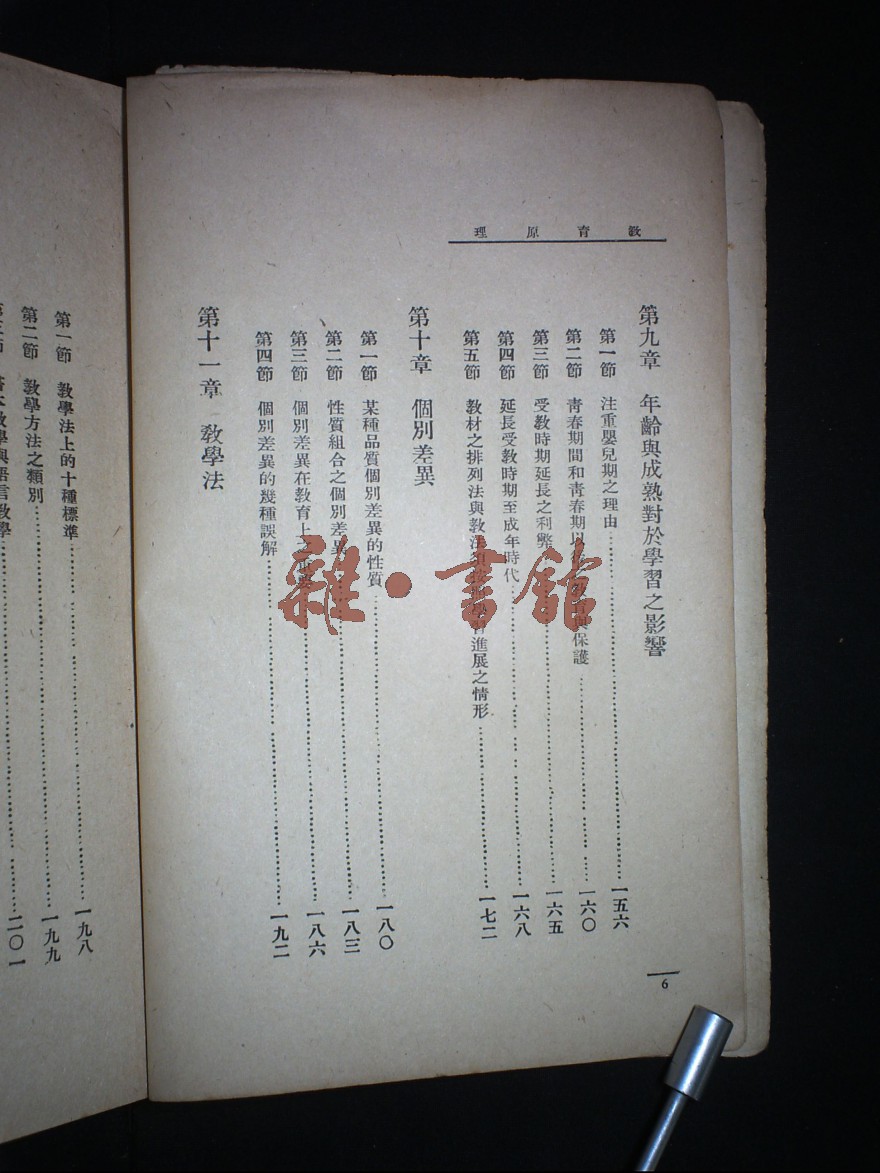 教育原理
第九章 年齡與成熟對於學習之影響
第一節 注重嬰兒期之理由……一五六
第二節 青春期間和青春期以教育與保護……一六〇
第三節 受教時期延長之利弊……一六五
第四節 延長受教時期至成年時代……一六八
第五節 教材之排列法與教法須按學習進展之情形……一七二
第十章 個別差異
第一節 某種品質個別差異的性質……一八〇
第二節 性質組合之個別差異……一八三
第三節 個別差異在教育上之……一八六
第四節 個別差異的幾種誤解……一九二
第十一章 教學法
6
第一節 教學法上的十種標準……一九八
第二節 教學方法之類別……一九九
第三節 書本教學與語言教學……二〇一
雜·書館